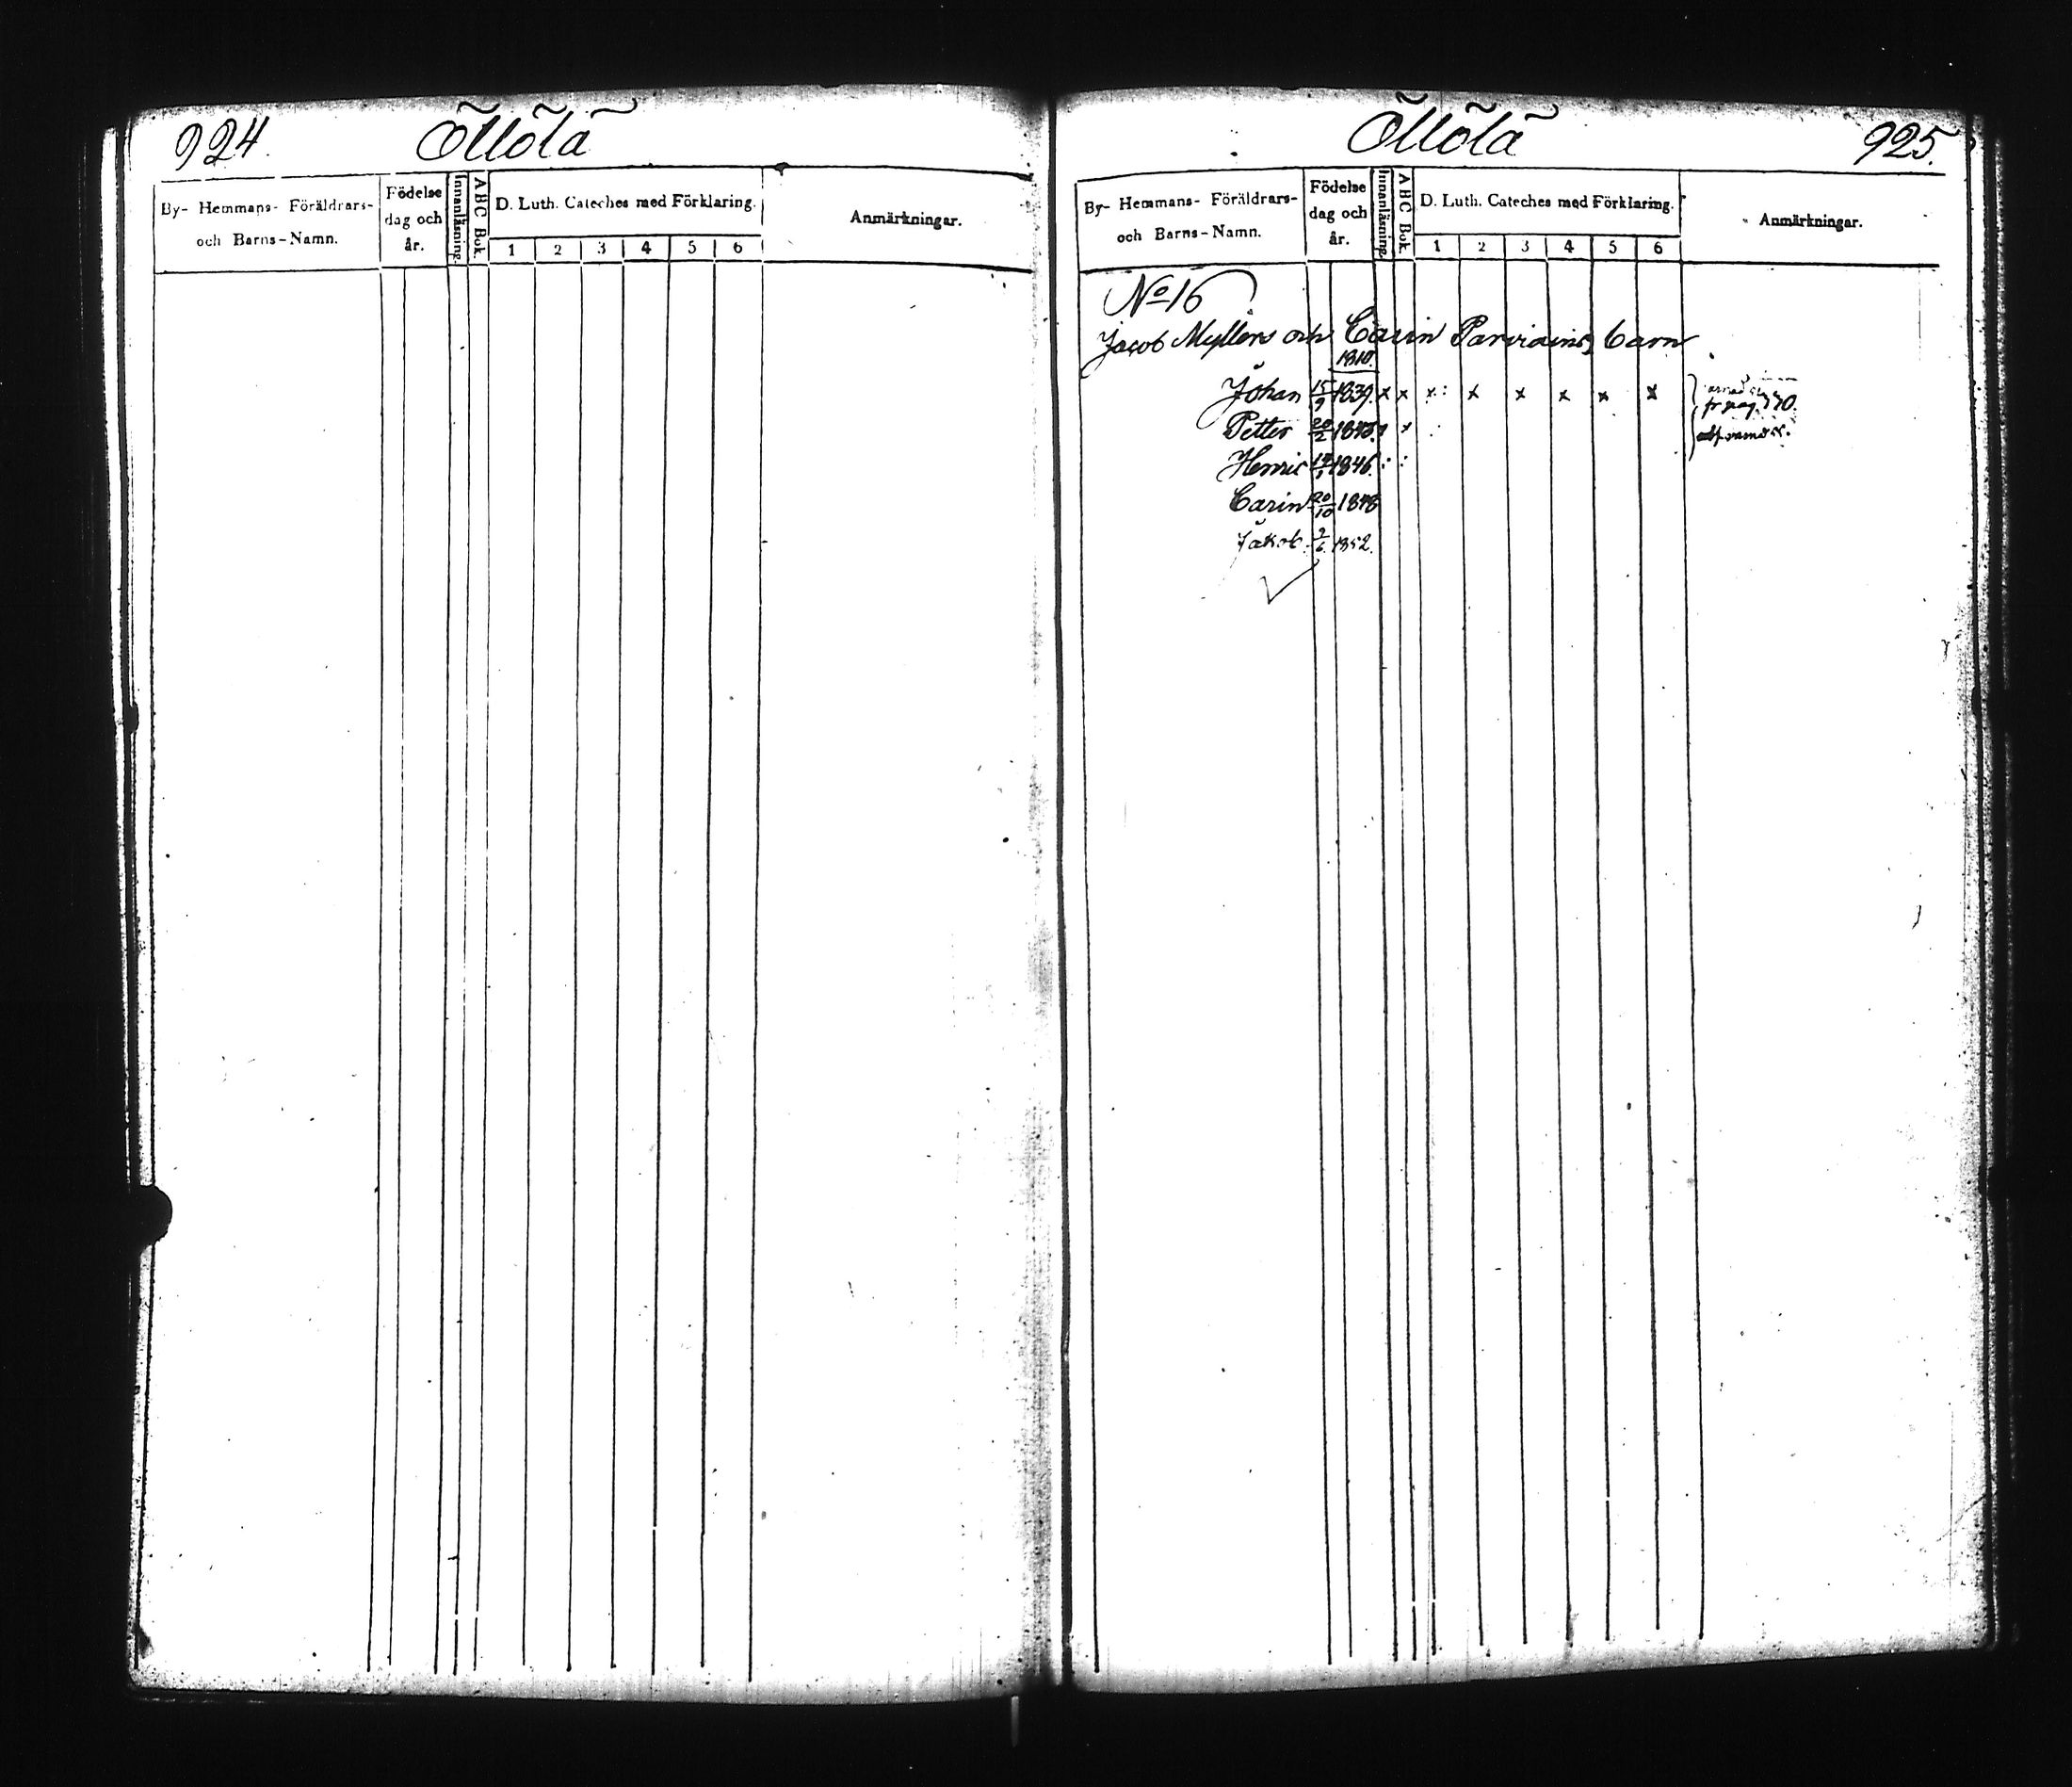 924 Öllölä
By- Hemmans- Föräldrars- och Barns-Namn.
Födelse dag och år.
Innanläsning.
ABC Bok.
D. Luth. Cateches med Förklaring.
1 2 3 4 5 6
Anmärkningar.
Öllölä 925.
By- Hemmans- Föräldrars- och Barns-Namn.
Födelse dag och år.
Innanläsning.
ABC Bok.
D. Luth. Cateches med Förklaring.
1 2 3 4 5 6
Anmärkningar.
No 16
Jacob Myllers och Carin Parviainens barn
1810.
Johan 15/9 1839. x x x x x x x x
fr pag. 770.
Petter 20/2 x
Henric 1846.
Carin 20/10 1848
Jakob 2/6 1852.